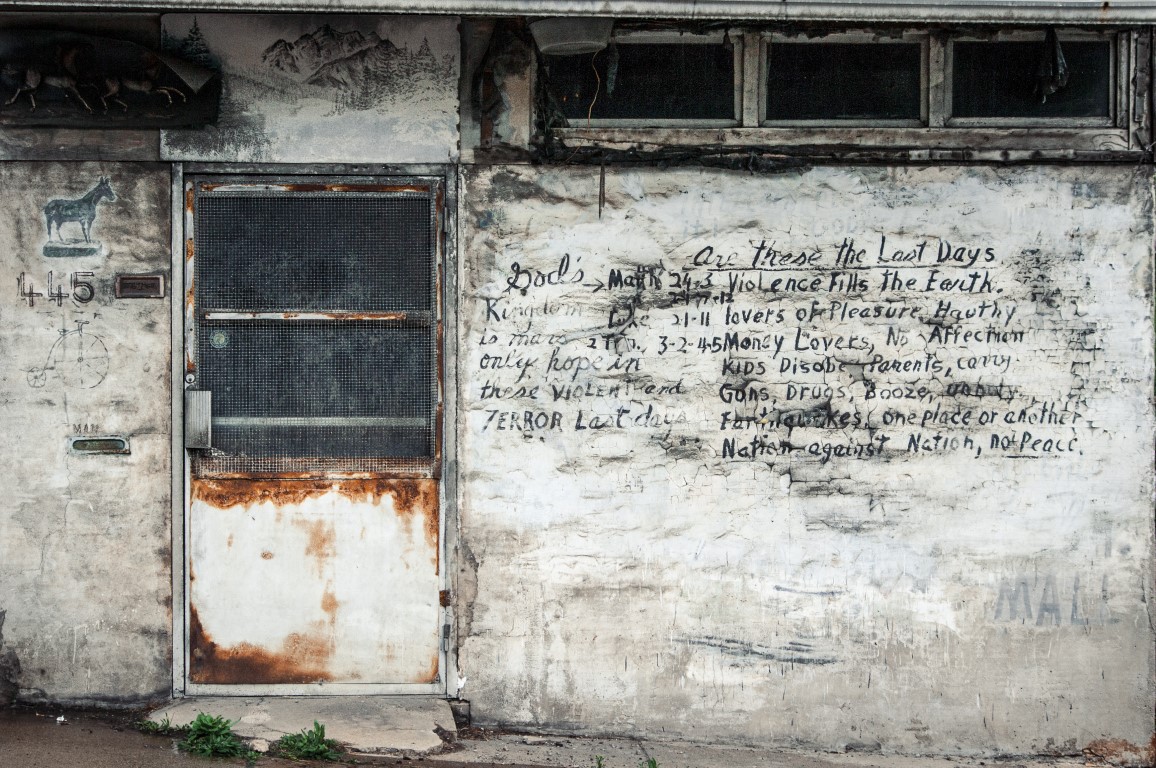 445
MAIL
Are these the Last Days
God's
Kingdom
is mans
only hope in
these VIOLENT and
TERROR Last days
Matth 24-3 Violence Fills The Earth.
Luke 21-11 lovers of Pleasure, Hawthy
2 Tim. 3-2-4-5 Money Lovers, No Affection
KIDS Disobe Parents, carry
Guns, Drugs, Booze,
Earthquakes, one place or another
Nation against Nation, no Peace.
MALL